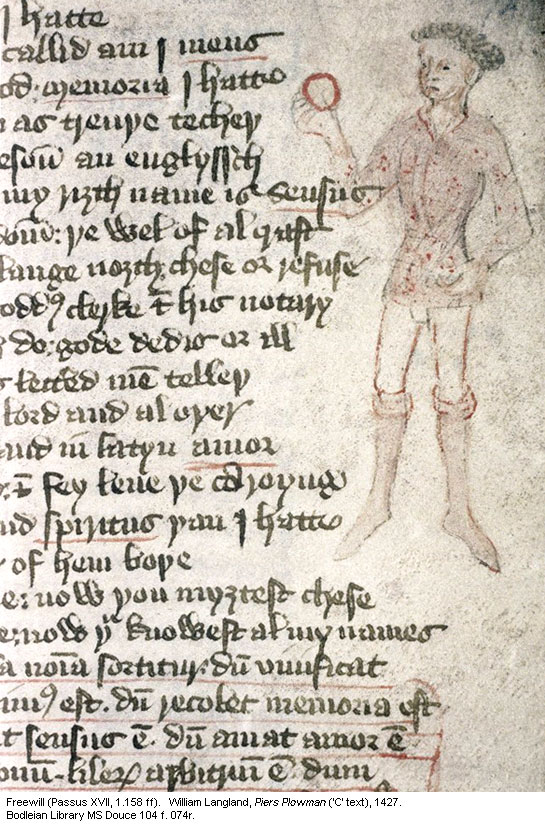 I hatte
callid am I mens
od · memoria I hatte
as treuþe techeþ
esoun an englyssch
my riȝth name is sensus
doun : þe wel of al craft
lange north ; chese or refuse
odd⁹ clerke & his notary
do : gode dedis or ill
lettred mē telleþ
lord and al oþer
and in latyn amor
& fley leue þe
nd spiritus þan I hatte
of hem boþe
e : now þou myȝtest chese
e ; now þᵘ knowest al my names
a noīa sortitur · dū viuificat
im⁹ est · dū recolet memoria est
t sensus ē · dū amat amor ē
liber arbitriū ē dum
Freewill (Passus XVII, 1.158 ff). William Langland, Piers Plowman ('C' text), 1427.
Bodleian Library MS Douce 104 f. 074r.